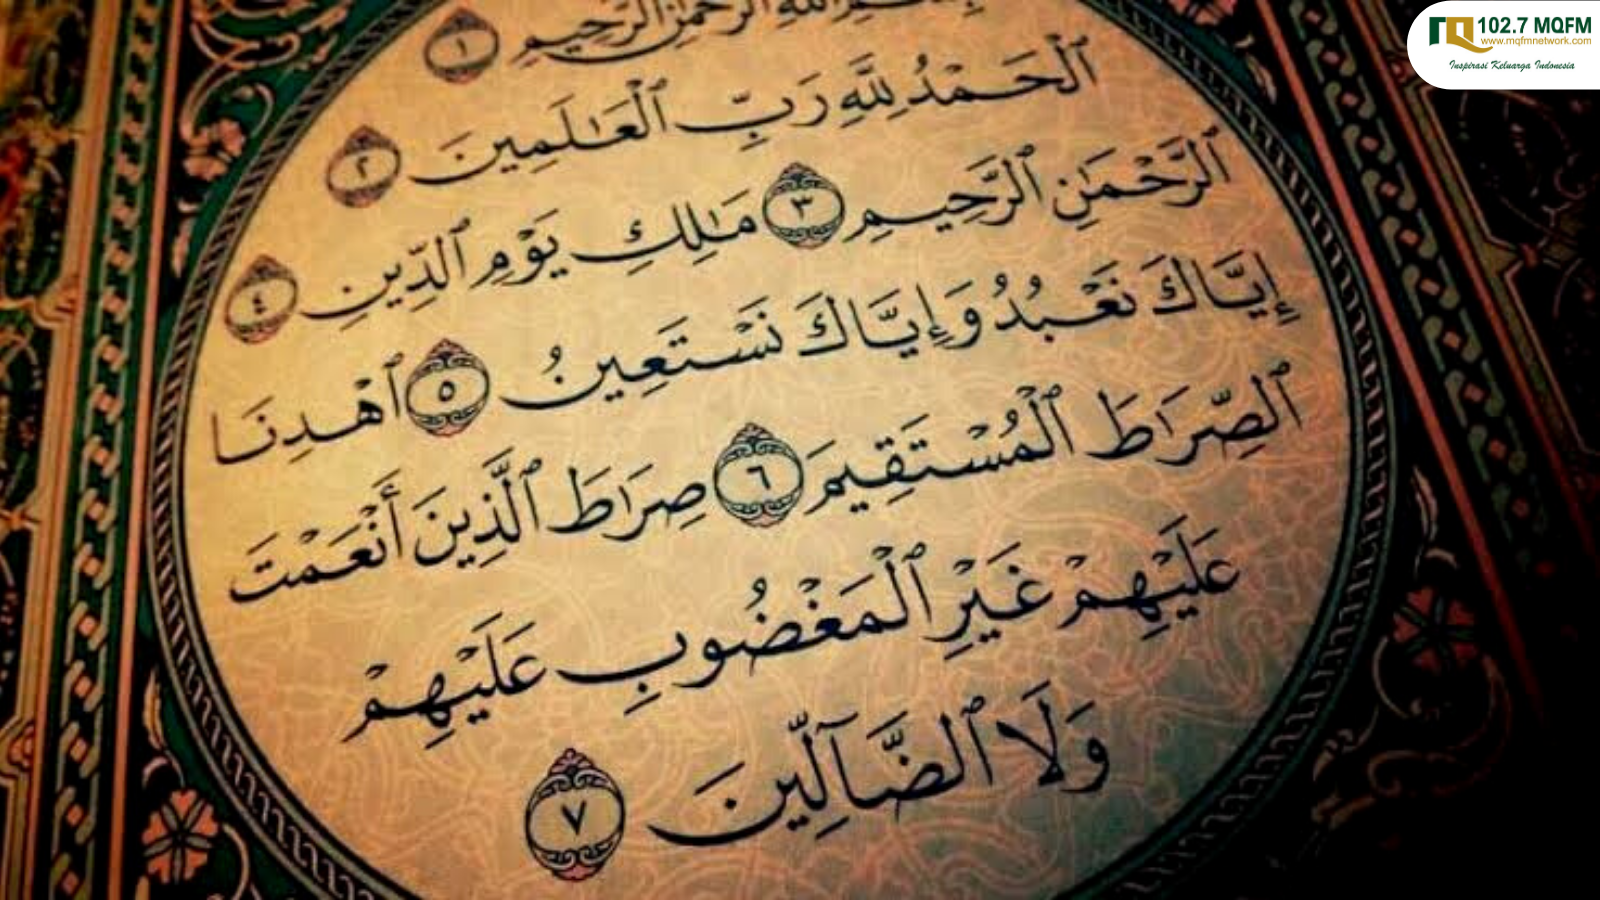 102.7 MQFM
www.mqfmnetwork.com
Inspirasi Keluarga Indonesia
بِسْمِ ٱللَّهِ ٱلرَّحْمَٰنِ ٱلرَّحِيمِ ١
ٱلْحَمْدُ لِلَّهِ رَبِّ ٱلْعَٰلَمِينَ ٢
ٱلرَّحْمَٰنِ ٱلرَّحِيمِ ٣ مَٰلِكِ يَوْمِ ٱلدِّينِ ٤
إِيَّاكَ نَعْبُدُ وَإِيَّاكَ نَسْتَعِينُ ٥ ٱهْدِنَا
ٱلصِّرَٰطَ ٱلْمُسْتَقِيمَ ٦ صِرَٰطَ ٱلَّذِينَ أَنْعَمْتَ
عَلَيْهِمْ غَيْرِ ٱلْمَغْضُوبِ عَلَيْهِمْ
وَلَا ٱلضَّآلِّينَ ٧